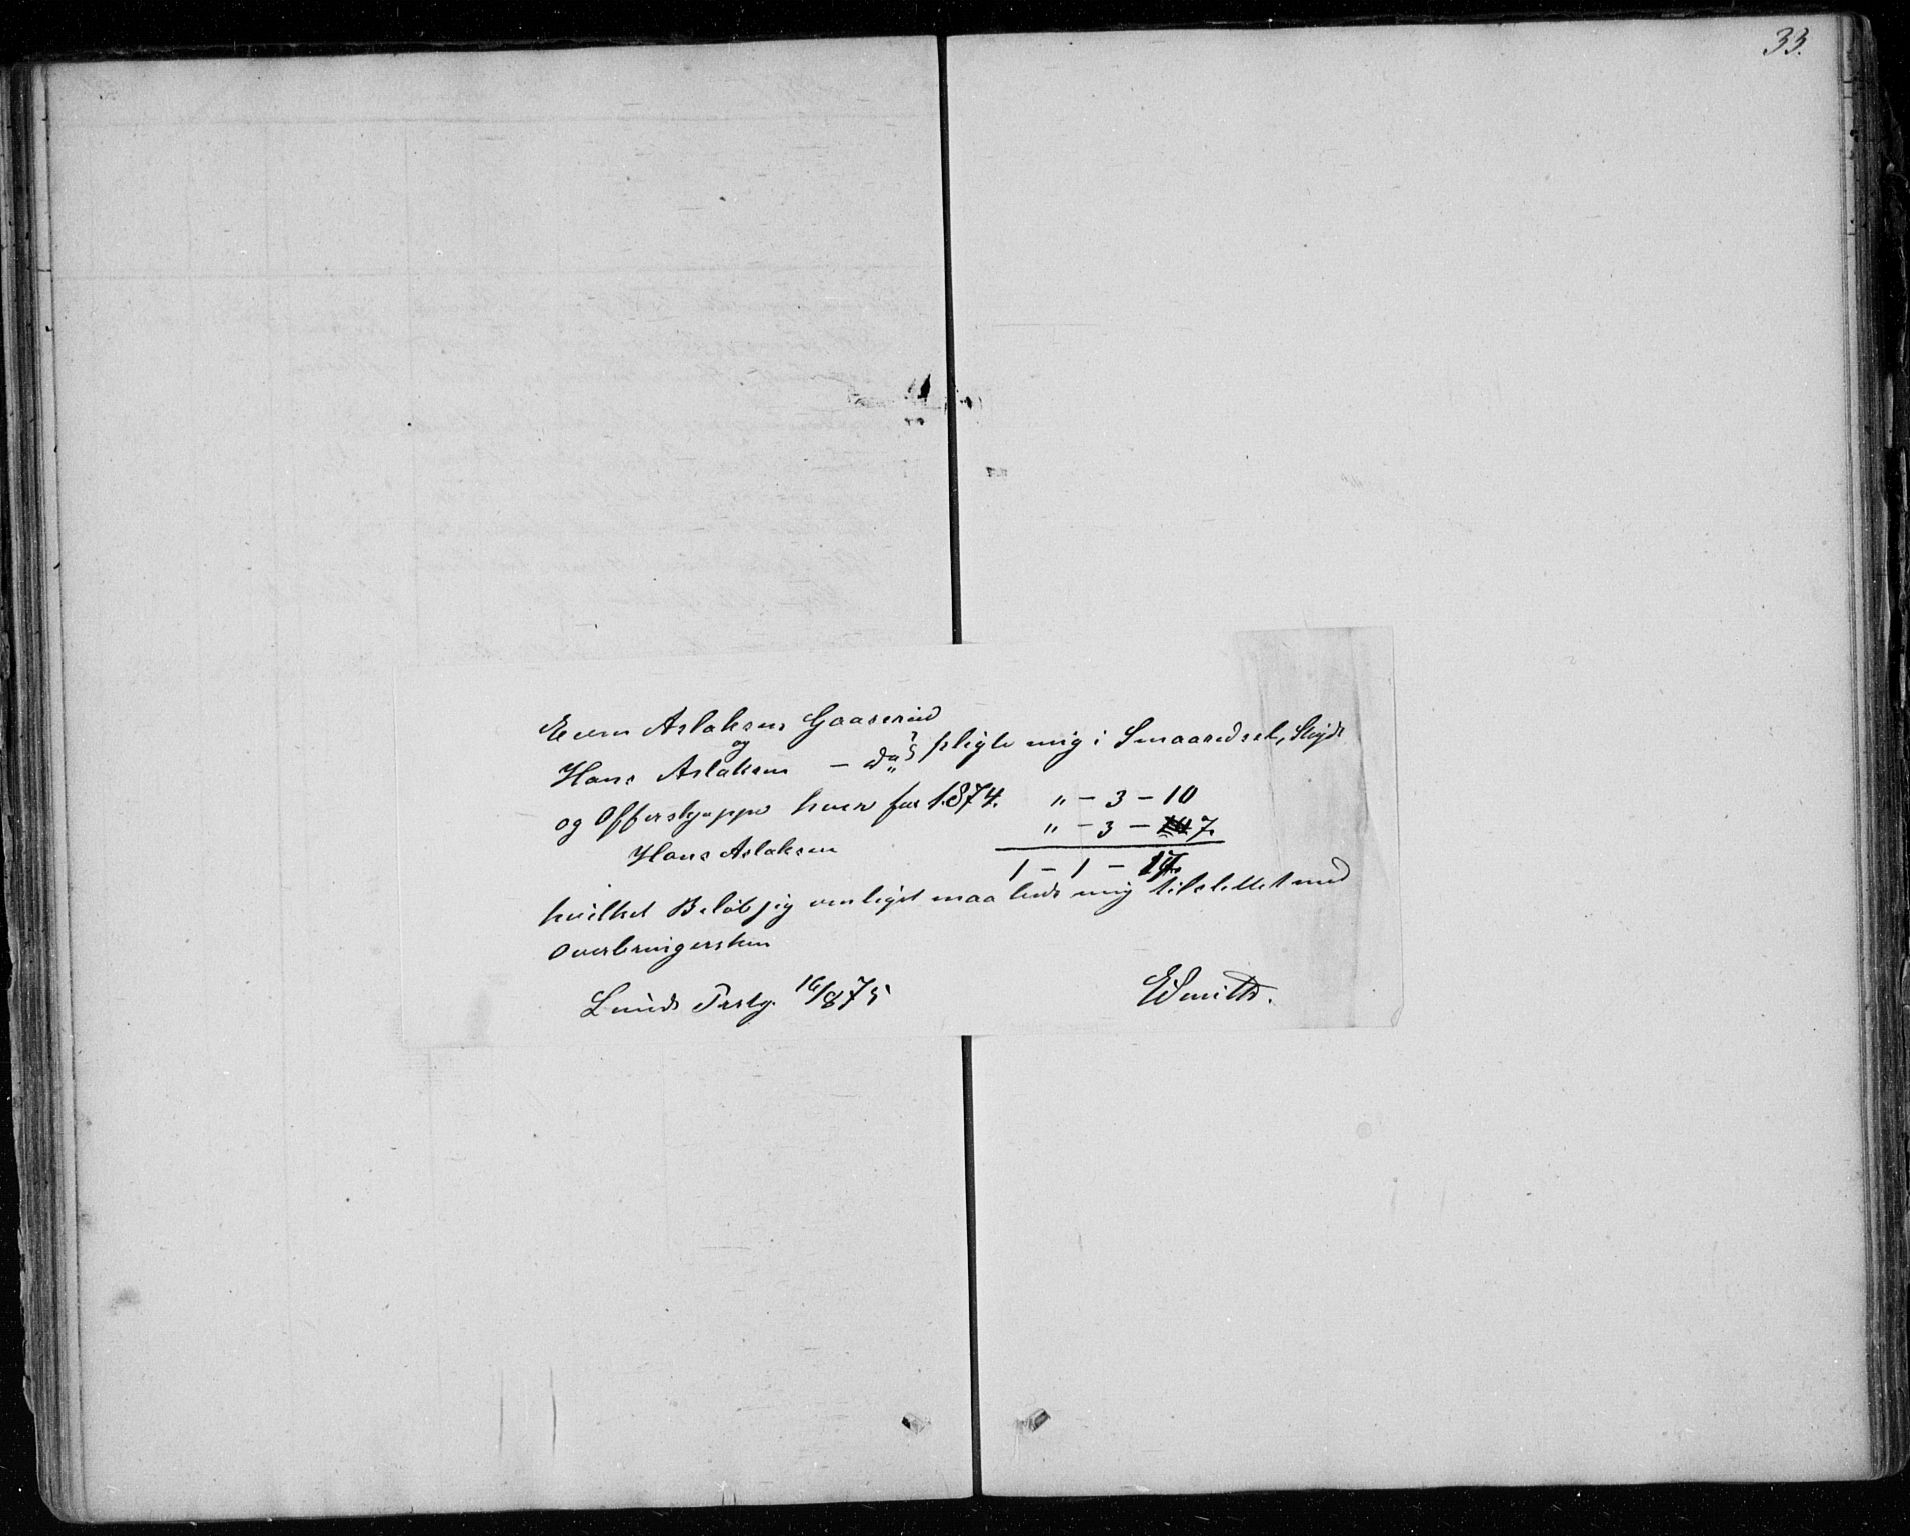 33.
Even Aslaksen Gaaserud
og
Hans Aslaksen — do pligte mig i Smaaredsel, Skyds
og Offerskjeppe hver for 1874. " – 3 – 10
" – 3 – 7.
Hans Aslaksen
1 – 1 – 17.
hvilket Beløb jeg venligst maa bede mig tilstillet med
Overbringersken
Lunds Prstg. 16/875
ESmith.